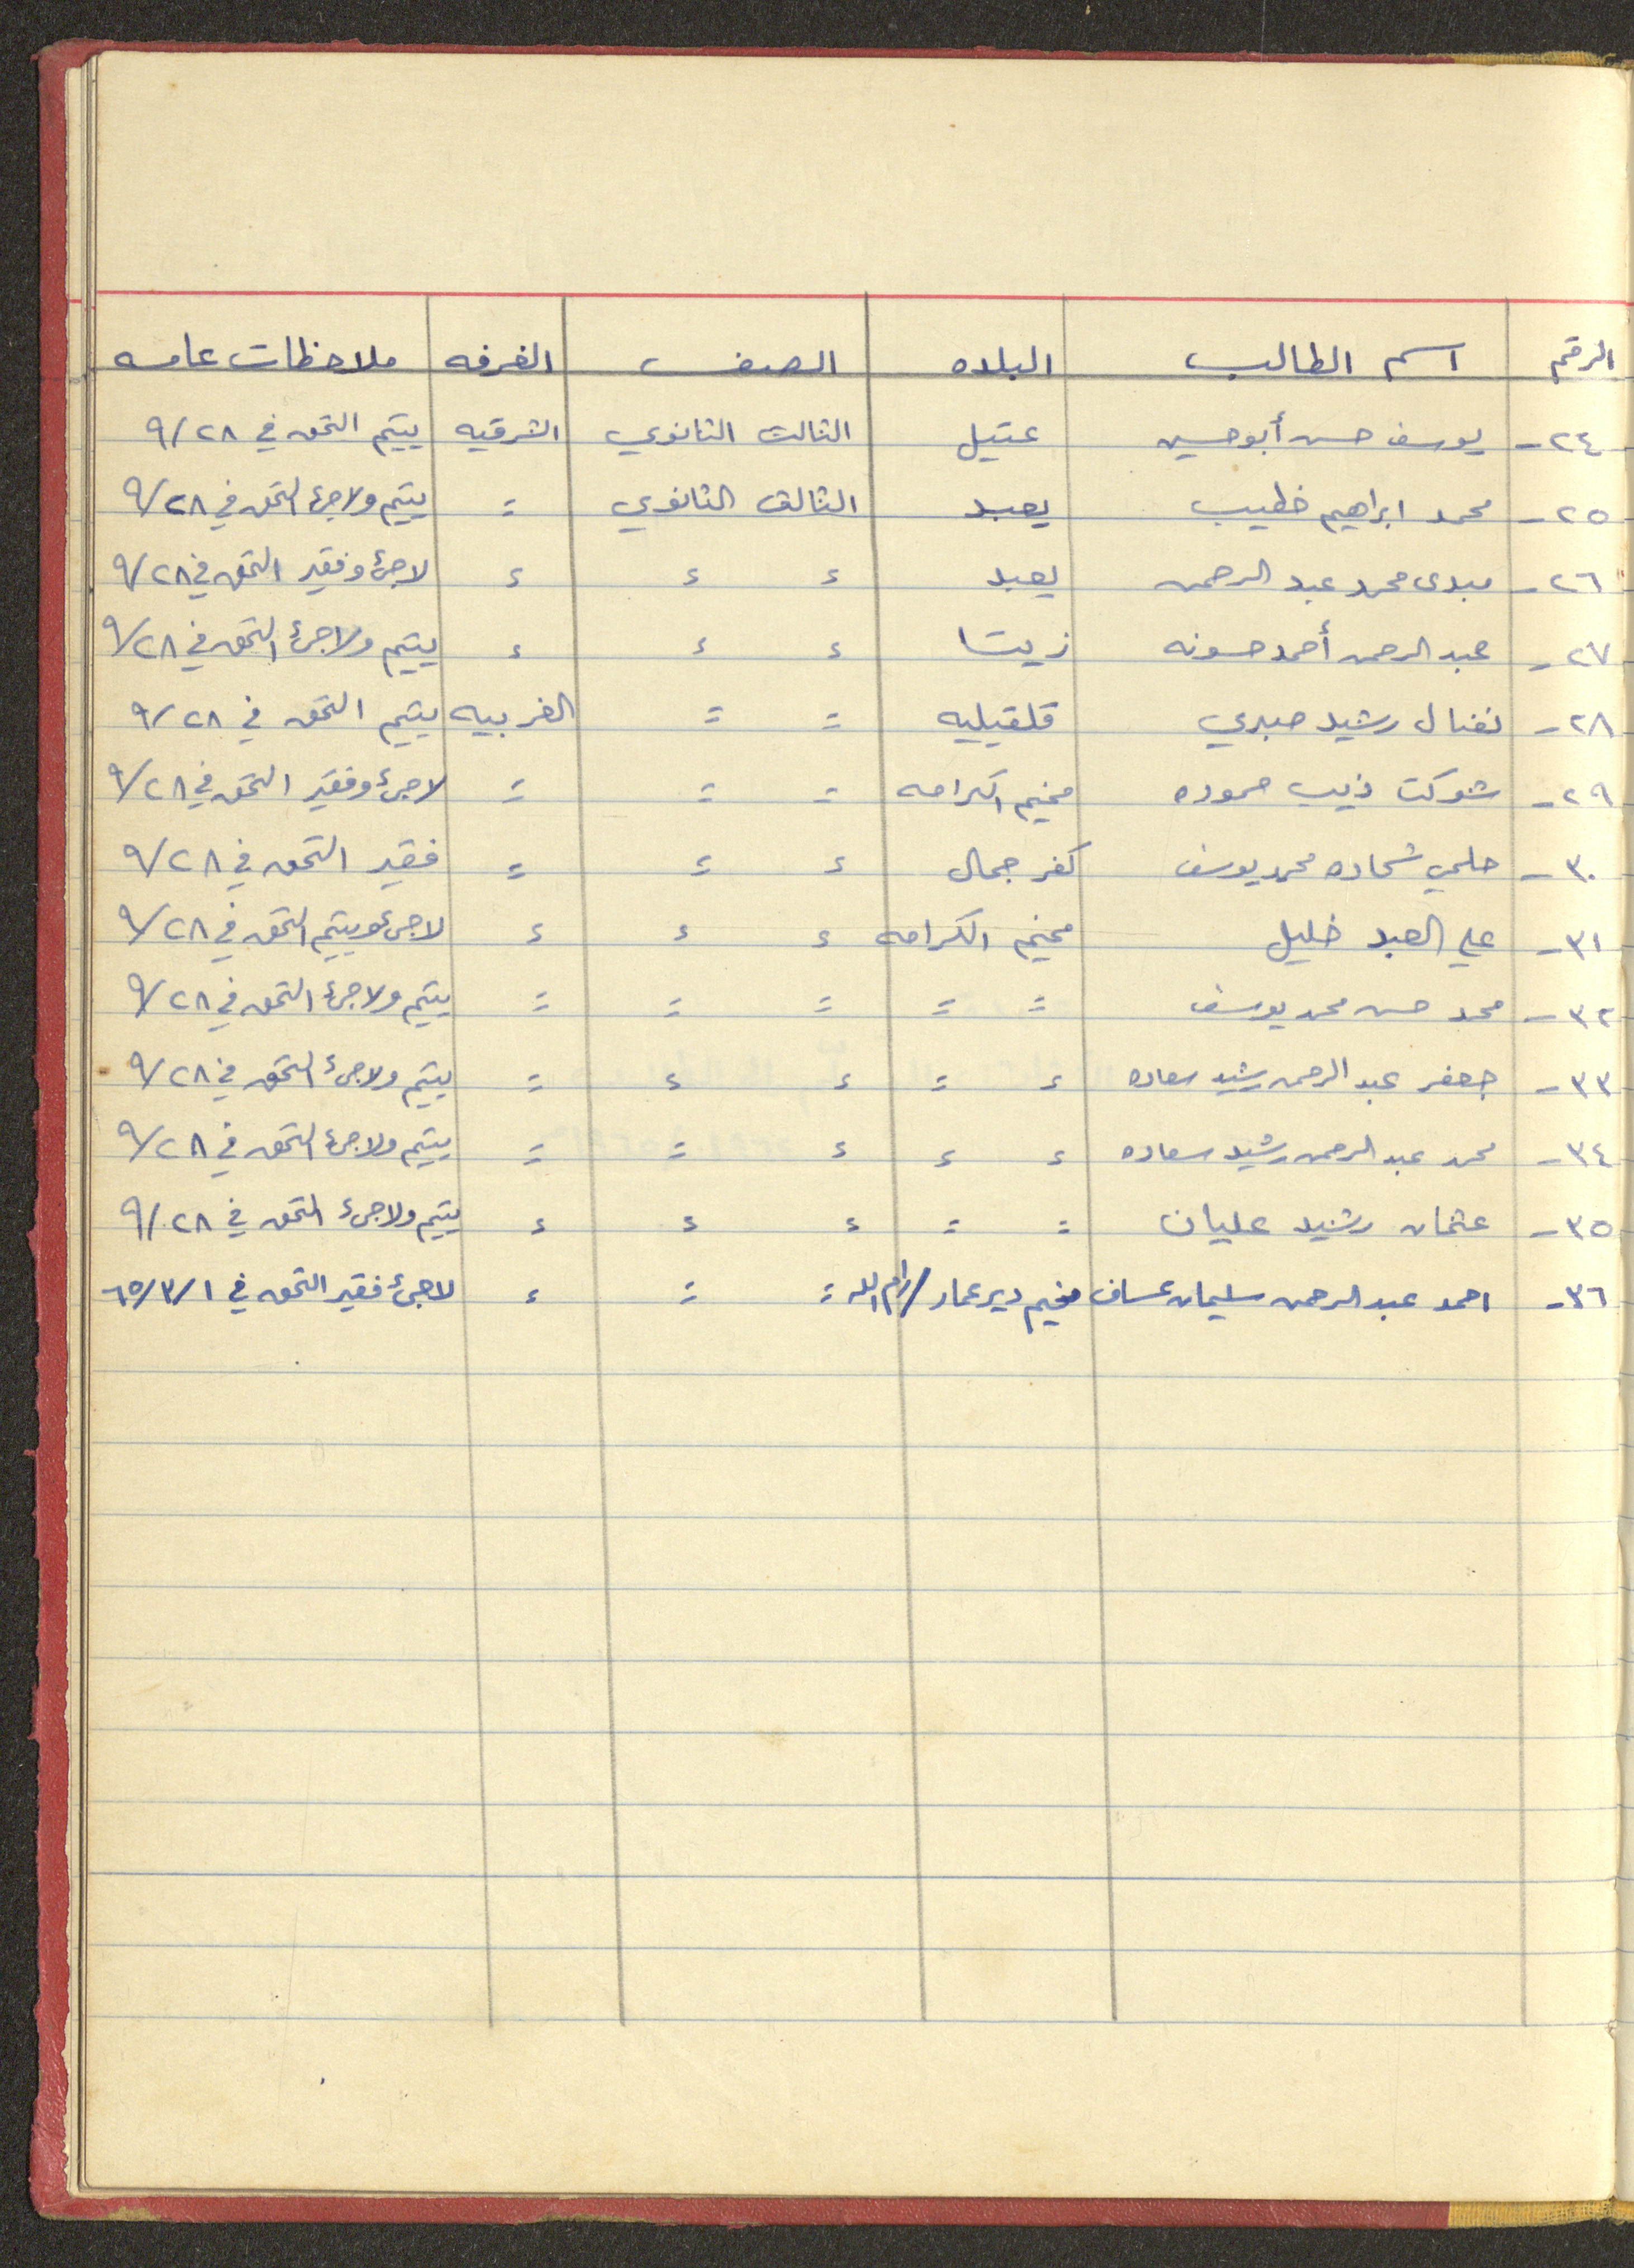 الرقم اسم الطالب البلده الصف الغرفه ملاحظات عامه
٢٤- يوسف حسن أبو حسين عتيل الثالث الثانوي الشرقيه يتيم التحق في ٩/٢٨
٢٥- محمد ابراهيم خطيب يعبد الثالث الثانوي = يتيم ولاجئ التحق في ٩/٢٨
٢٦- مبدى محمد عبد الرحمن يعبد ء ء ء لاجئ وفقير التحق في ٩/٢٨
٢٧- عبد الرحمن أحمد حسونه زيتا ء ء ء يتيم ولاجئ التحق في ٩/٢٨
٢٨- نضال رشيد صبري قلقيليه = = الغربيه يتيم التحق في ٩/٢٨
٢٩- شوكت ذيب حموده مخيم الكرامه = = = لاجئ وفقير التحق في ٩/٢٨
٣٠- حلمي شحاده محمد يوسف كفر جمال ء = = فقير التحق في ٩/٢٨
٣١- علي العبد خليل مخيم الكرامه ء ء ء لاجئ ويتيم التحق في ٩/٢٨
٣٢- محمد حسن محمد يوسف = = = = = يتيم ولاجئ التحق في ٩/٢٨
٣٣- جعفر عبد الرحمن رشيد سعاده ء = ء ء = يتيم ولاجئ التحق في ٩/٢٨
٣٤- محمد عبد الرحمن رشيد سعاده ء ء ء = = يتيم ولاجئ التحق في ٩/٢٨
٣٥- عثمان رشيد عليان = = ء ء ء يتيم ولاجئ التحق في ٩/٢٨
٣٦- احمد عبد الرحمن سليمان عساف مخيم دير عمار/رام الله = = ء لاجئ فقير التحق في ٦٥/٣/١